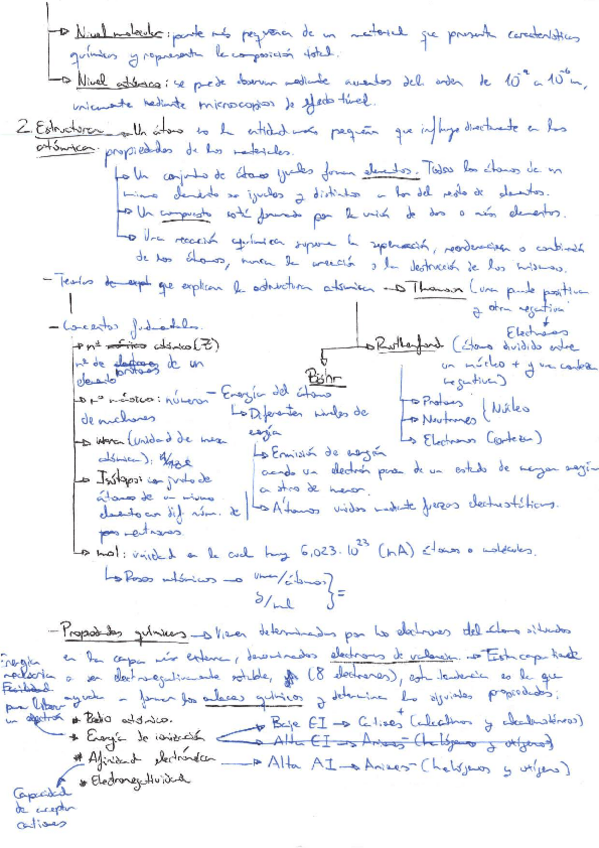 → Nivel molecular: parte más pequeña de un material que presenta características
químicas y representa la composición total.
→ Nivel atómico: se puede observar mediante aumentos del orden de
unicamente mediante microscopios de efecto túnel.
2. Estructura → Un átomo es la entidad más pequeña que influye directamente en las
atómica. propiedades de los materiales.
→ Un conjunto de átomos iguales forman elementos. Todos los átomos de un
mismo elemento son iguales y distintos a los del resto de elementos.
→ Un compuesto está formado por la unión de dos o más elementos.
→ Una reacción química supone la separación, reordenación o combinación
de los átomos, nunca la creación o la destrucción de los mismos.
- Teorías que explican la estructura atómica → Thomson (una parte positiva
y otra negativa)
Electrones
- Conceptos fundamentales.
→ nº atómico (Z)
nº de protones de un
elemento
→ Rutherford (átomo dividido entre
un núcleo + y una corteza
negativa)
→ Protones
→ Neutrones
} Núcleo
→ Electrones (corteza)
Böhr
- Energía del átomo
→ Diferentes niveles de
energía
→ Emisión de energía
cuando un electrón pasa de un estado de mayor energía
a otro de menor.
→ Átomos unidos mediante fuerzas electrostáticas.
→ nº másico: número
de nucleones
→ (unidad de masa
atómica):
→ Isótopo: conjunto de
átomos de un mismo
elemento con dif. núm. de
neutrones.
→ mol: unidad en la cual hay 6,023·10²³ (NA) átomos o moléculas.
→ Pesos atómicos → uma/átomos
g/mol
} =
- Propiedades químicas → Vienen determinadas por los electrones del átomo situados
en la capa más externa, denominados electrones de valencia. → Esta capa tiende
a ser electronegativamente estable, (8 electrones), esta tendencia es la que
ayuda a formar los enlaces químicos y determina las siguientes propiedades:
Energía
necesaria
Facilidad
para liberar
un electrón
* Radio atómico.
* Energía de ionización
* Afinidad electrónica
* Electronegatividad
Baja EI → Cationes+ (alcalinos y alcalinotérreos)
Alta EI → Aniones- (halógenos y oxígeno)
→ Alta AI → Aniones- (halógenos y oxígeno)
Capacidad
de aceptar
cationes